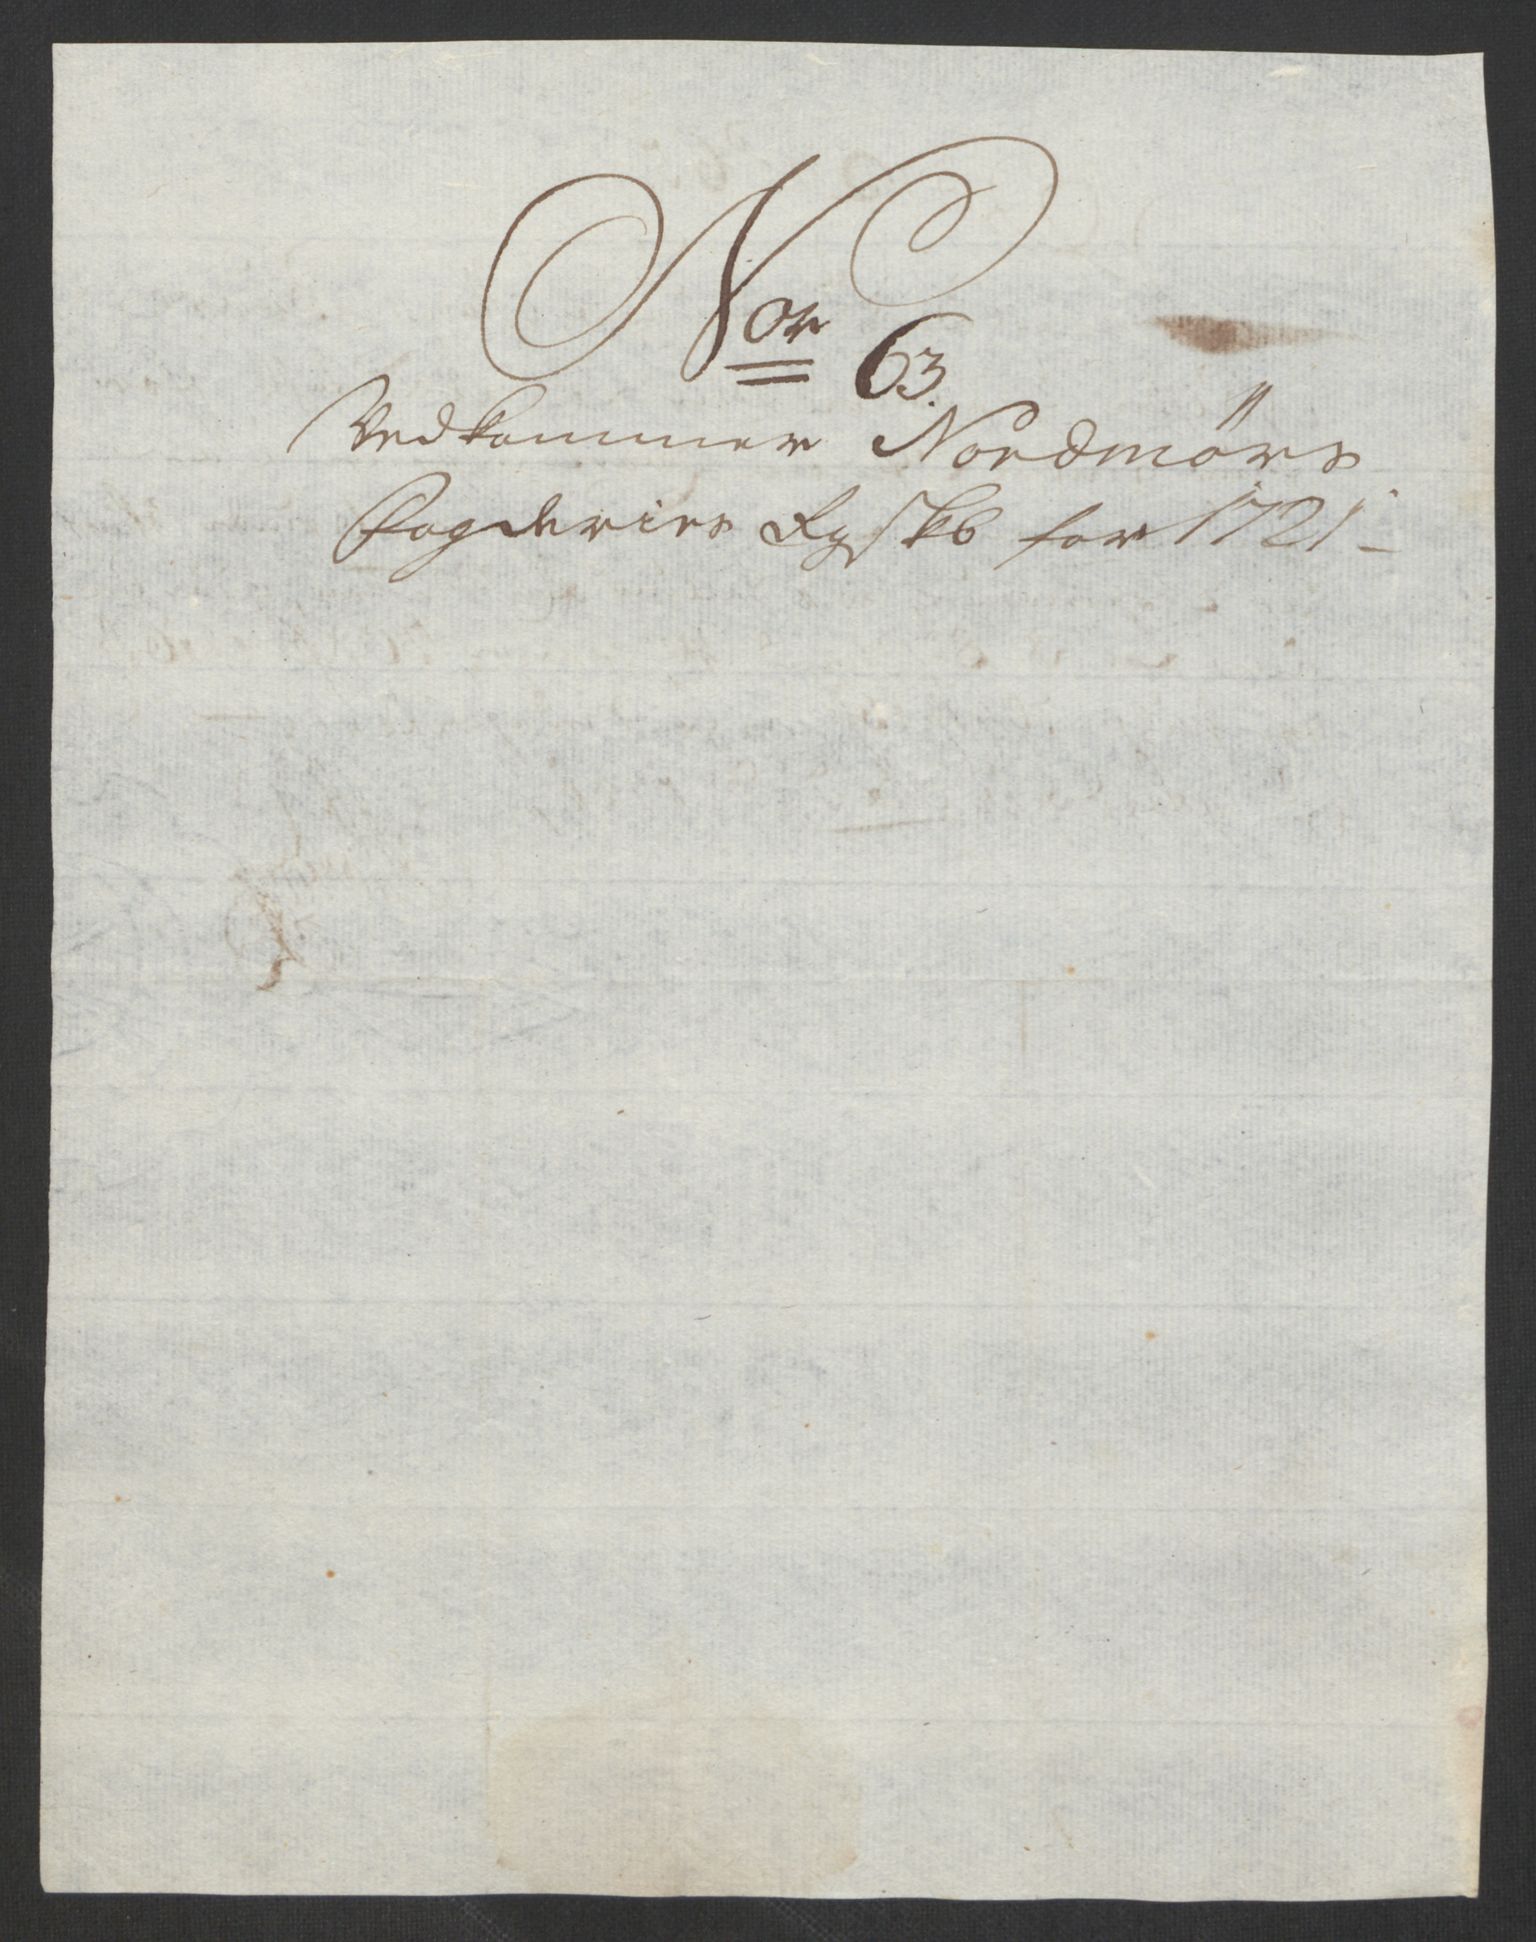 Nor 63.
Vedkommer Nordmörs
Fogderies Rgskb for 1721